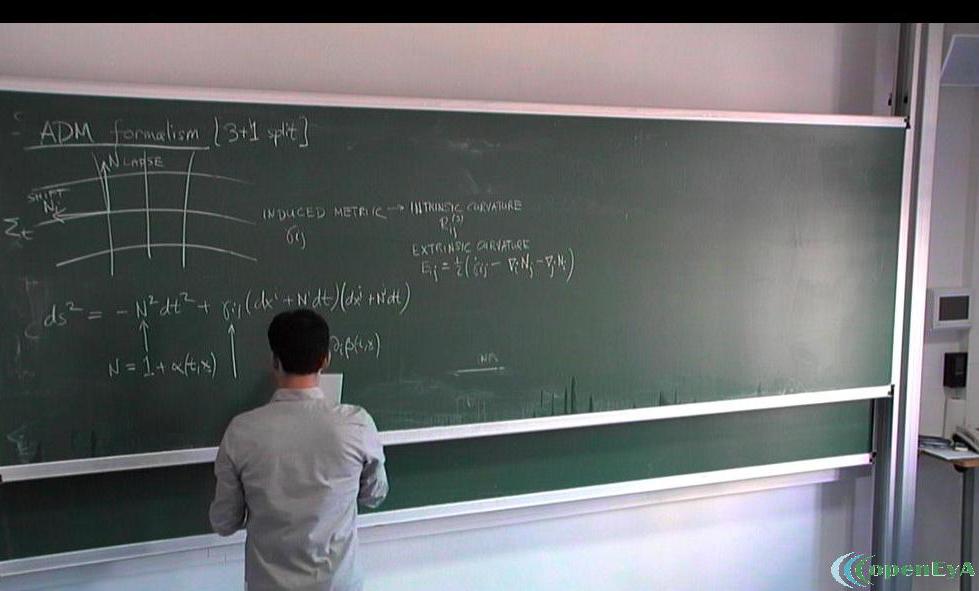 ADM formalism [3+1 split]
N LAPSE
SHIFT
Nᵢ
Σₜ
INDUCED METRIC → INTRINSIC CURVATURE
γᵢⱼ
Rᵢⱼ⁽³⁾
EXTRINSIC CURVATURE
Eᵢⱼ = ½(γ̇ᵢⱼ − ∇ᵢNⱼ − ∇ⱼNᵢ)
ds² = −N²dt² + γᵢⱼ(dxⁱ + Nⁱdt)(dxʲ + Nʲdt)
N = 1 + α(t,x)
∂ᵢβ(t,x)
openEyA